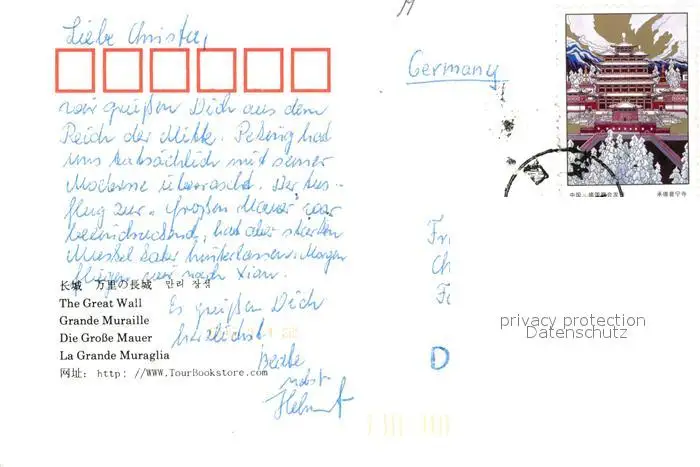 Liebe Christa,
wir grüßen Dich aus dem
Reich der Mitte. Peking hat
uns tatsächlich mit seiner
Moderne überrascht. Der Aus-
flug zur "Großen Mauer" war
beeindruckend, hat aber starken
Muskelkater hinterlassen. Morgen
fliegen wir nach Xian.
Es grüßen Dich
herzlichst
nebst
Helmut
长城 万里の長城 만리 장성
The Great Wall
Grande Muraille
Die Große Mauer
La Grande Muraglia
网址: http: //WWW.TourBookstore.com
Germany
中国
承德普宁寺
Fr
Ch
D
privacy protection
Datenschutz